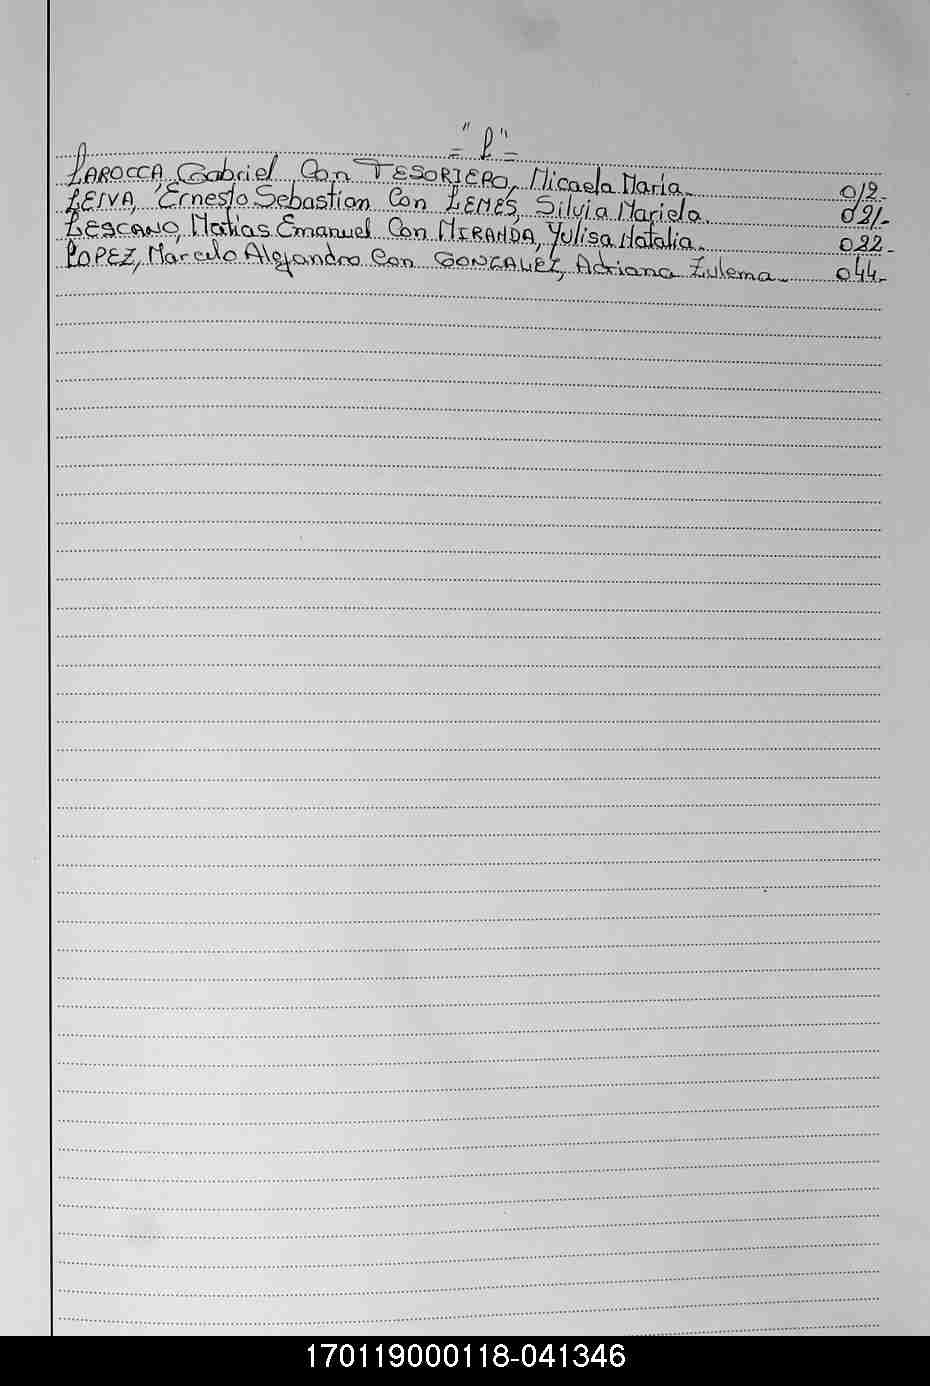 ="L"=
LAROCCA, Gabriel Con TESORIERO, Micaela María.- 012.-
LEIVA, Ernesto Sebastian Con LEMES, Silvia Mariela. 021.-
LESCANO, Matias Emanuel Con MIRANDA, Yulisa Natalia.- 022.-
LOPEZ, Marcelo Alejandro Con GONCALVEZ, Adriana Zulema.- 044.-
170119000118-041346